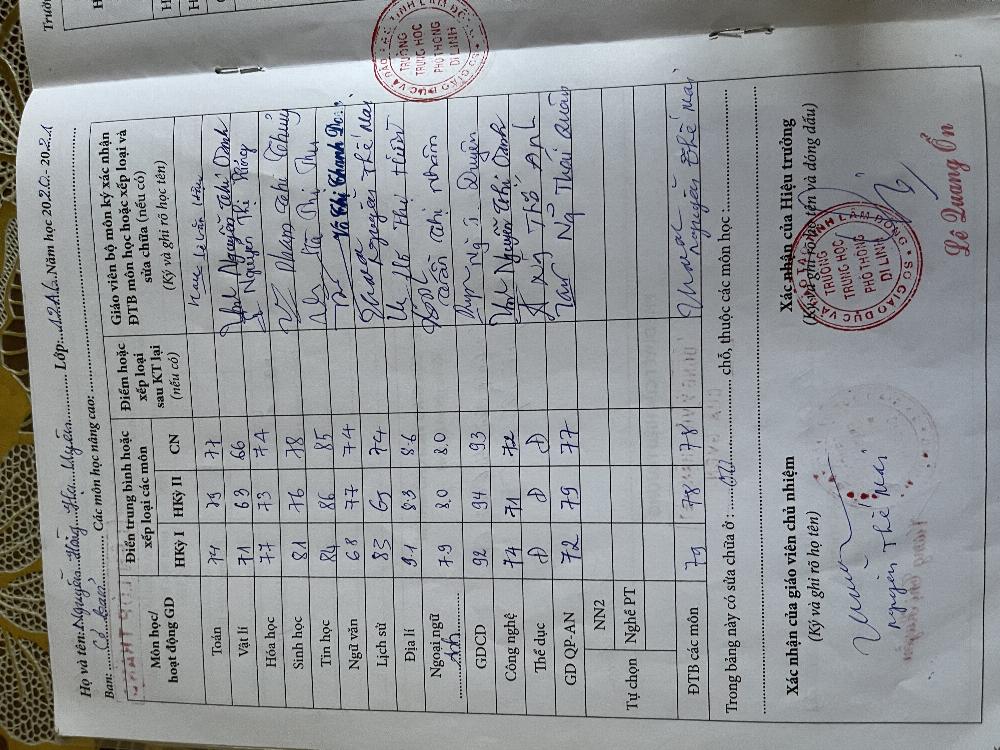 Họ và tên: Nguyễn Hồng Hạ Uyên Lớp: 12A6 Năm học 2020 - 2021
Ban: Cơ bản Các môn học nâng cao:
Môn học/ hoạt động GD
Điểm trung bình hoặc xếp loại các môn
Điểm hoặc xếp loại sau KT lại (nếu có)
Giáo viên bộ môn ký xác nhận ĐTB môn học hoặc xếp loại và sửa chữa (nếu có) (Ký và ghi rõ học tên)
HKỳ I HKỳ II CN
Toán 74 79 77
Vật lí 71 63 66 Nguyễn Thị Oanh
Hóa học 77 73 74 Nguyễn Thị Hồng
Sinh học 81 76 78 Phan Thị Thủy
Tin học 84 86 85 Tạ Thị Thu
Ngữ văn 68 77 74 Nguyễn Thế Mai
Lịch sử 83 69 74 Thị Hiền
Địa lí 9.1 8.3 8.6 Trần Thị Nhâm
Ngoại ngữ Anh 79 8.0 8.0 Duyên
GDCD 92 94 93 Nguyễn Thị Oanh
Công nghệ 74 71 72 Thế Anh
Thể dục Đ Đ Đ
GD QP-AN 72 79 77 Thái Quân
Tự chọn
NN2
Nghề PT
ĐTB các môn 79 78 78 Nguyễn Thế Mai
Trong bảng này có sửa chữa ở: chỗ, thuộc các môn học :
Xác nhận của giáo viên chủ nhiệm
(Ký và ghi rõ họ tên)
Nguyễn Thế Mai
Xác nhận của Hiệu trưởng
(Ký và ghi rõ họ tên và đóng dấu)
SỞ GIÁO DỤC VÀ ĐÀO TẠO TỈNH LÂM ĐỒNG
TRƯỜNG
TRUNG HỌC
PHỔ THÔNG
DI LINH
Lê Quang Ổn
TRƯỜNG
TRUNG HỌC
PHỔ THÔNG
DI LINH